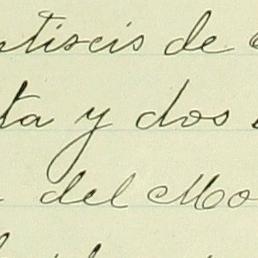 ntiseis de
ta y dos
del Mo